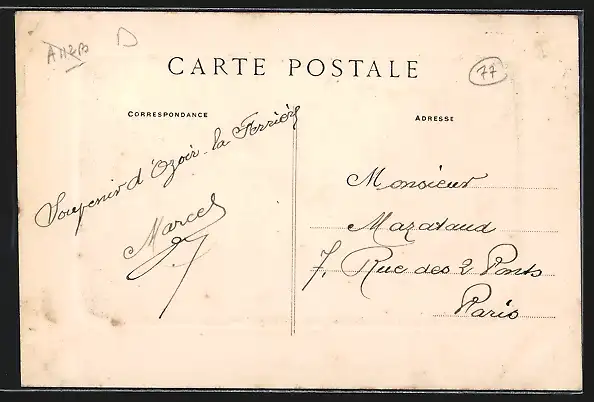 D
77
CARTE POSTALE
CORRESPONDANCE
ADRESSE
Souvenir d'Ozoir-la Ferrière
Marcel
Monsieur
Marataud
7, Rue des 2 Ponts
Paris